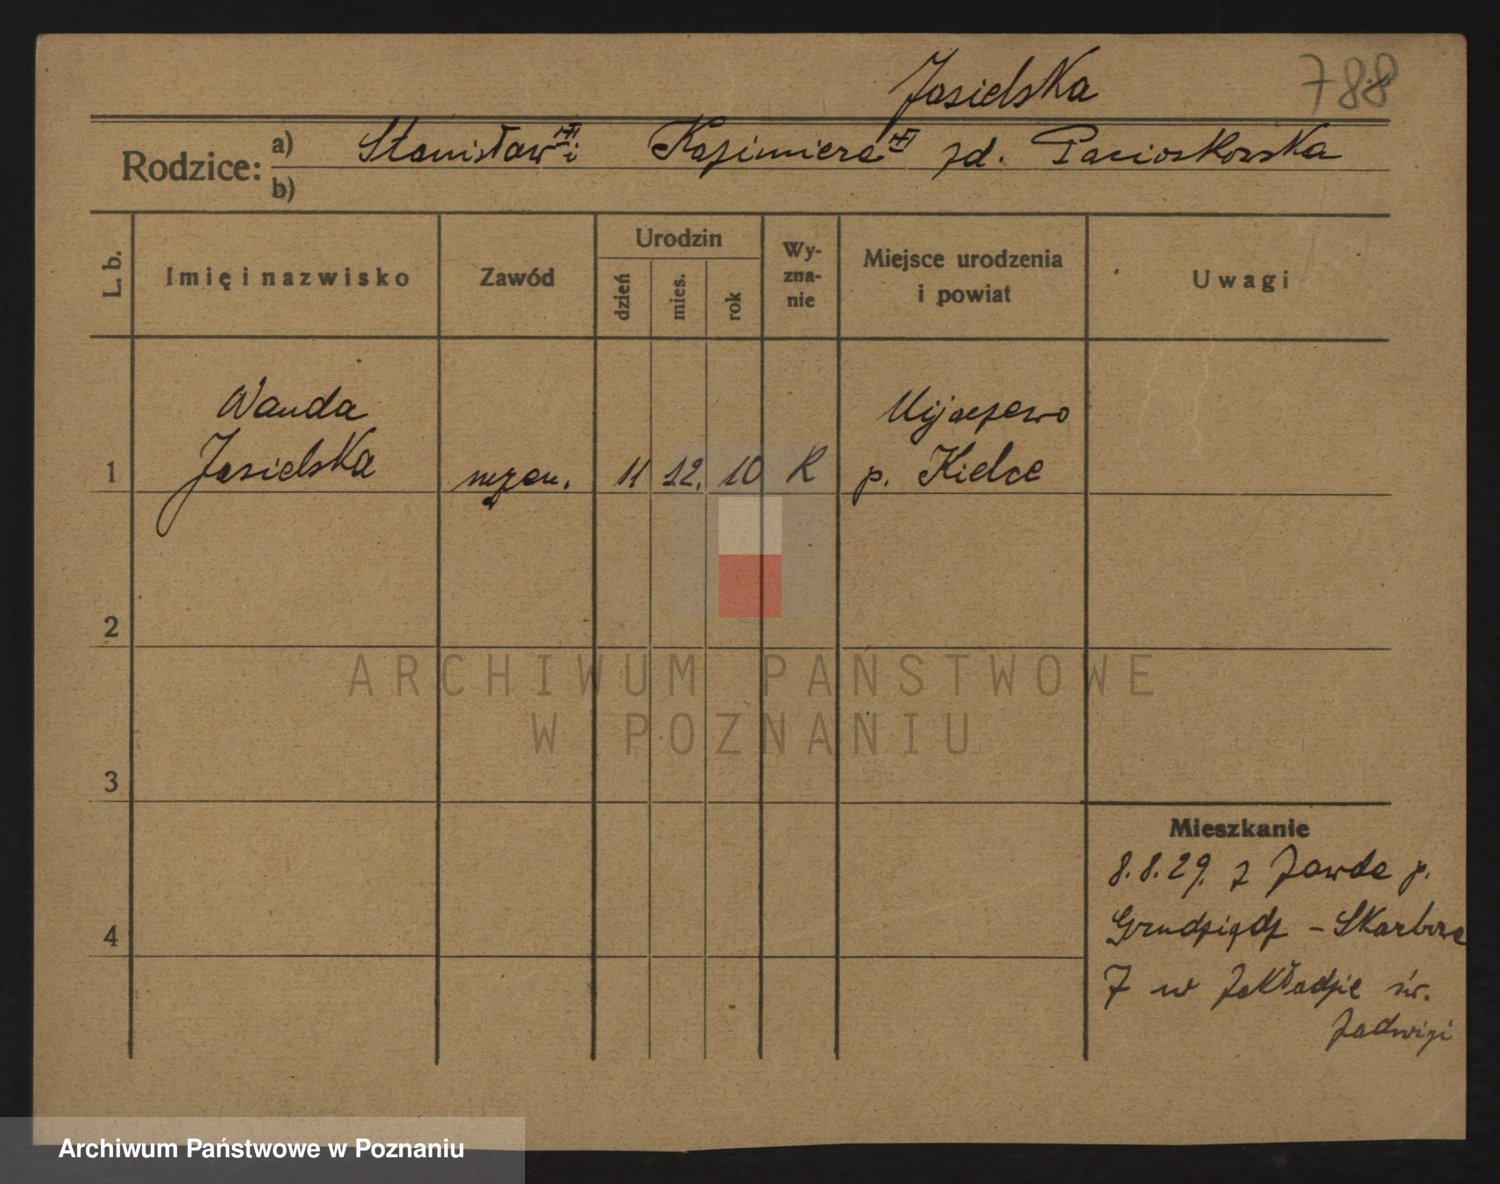 Jasielska
788
Rodzice: a) Stanisław i Kazimiera zd. Pacioskowska
b)
L. b.
Imię i nazwisko
Zawód
Urodzin
dzień
mies.
rok
Wy-
zna-
nie
Miejsce urodzenia
i powiat
Uwagi
Wanda
Jasielska
1
11 12. 10 R
p. Kielce
2
3
4
Mieszkanie
8.8.29. z Zawda p.
Grudziądz – Skarbowa
7 w Zakładzie św.
Jadwigi
ARCHIWUM PAŃSTWOWE
W POZNANIU
Archiwum Państwowe w Poznaniu